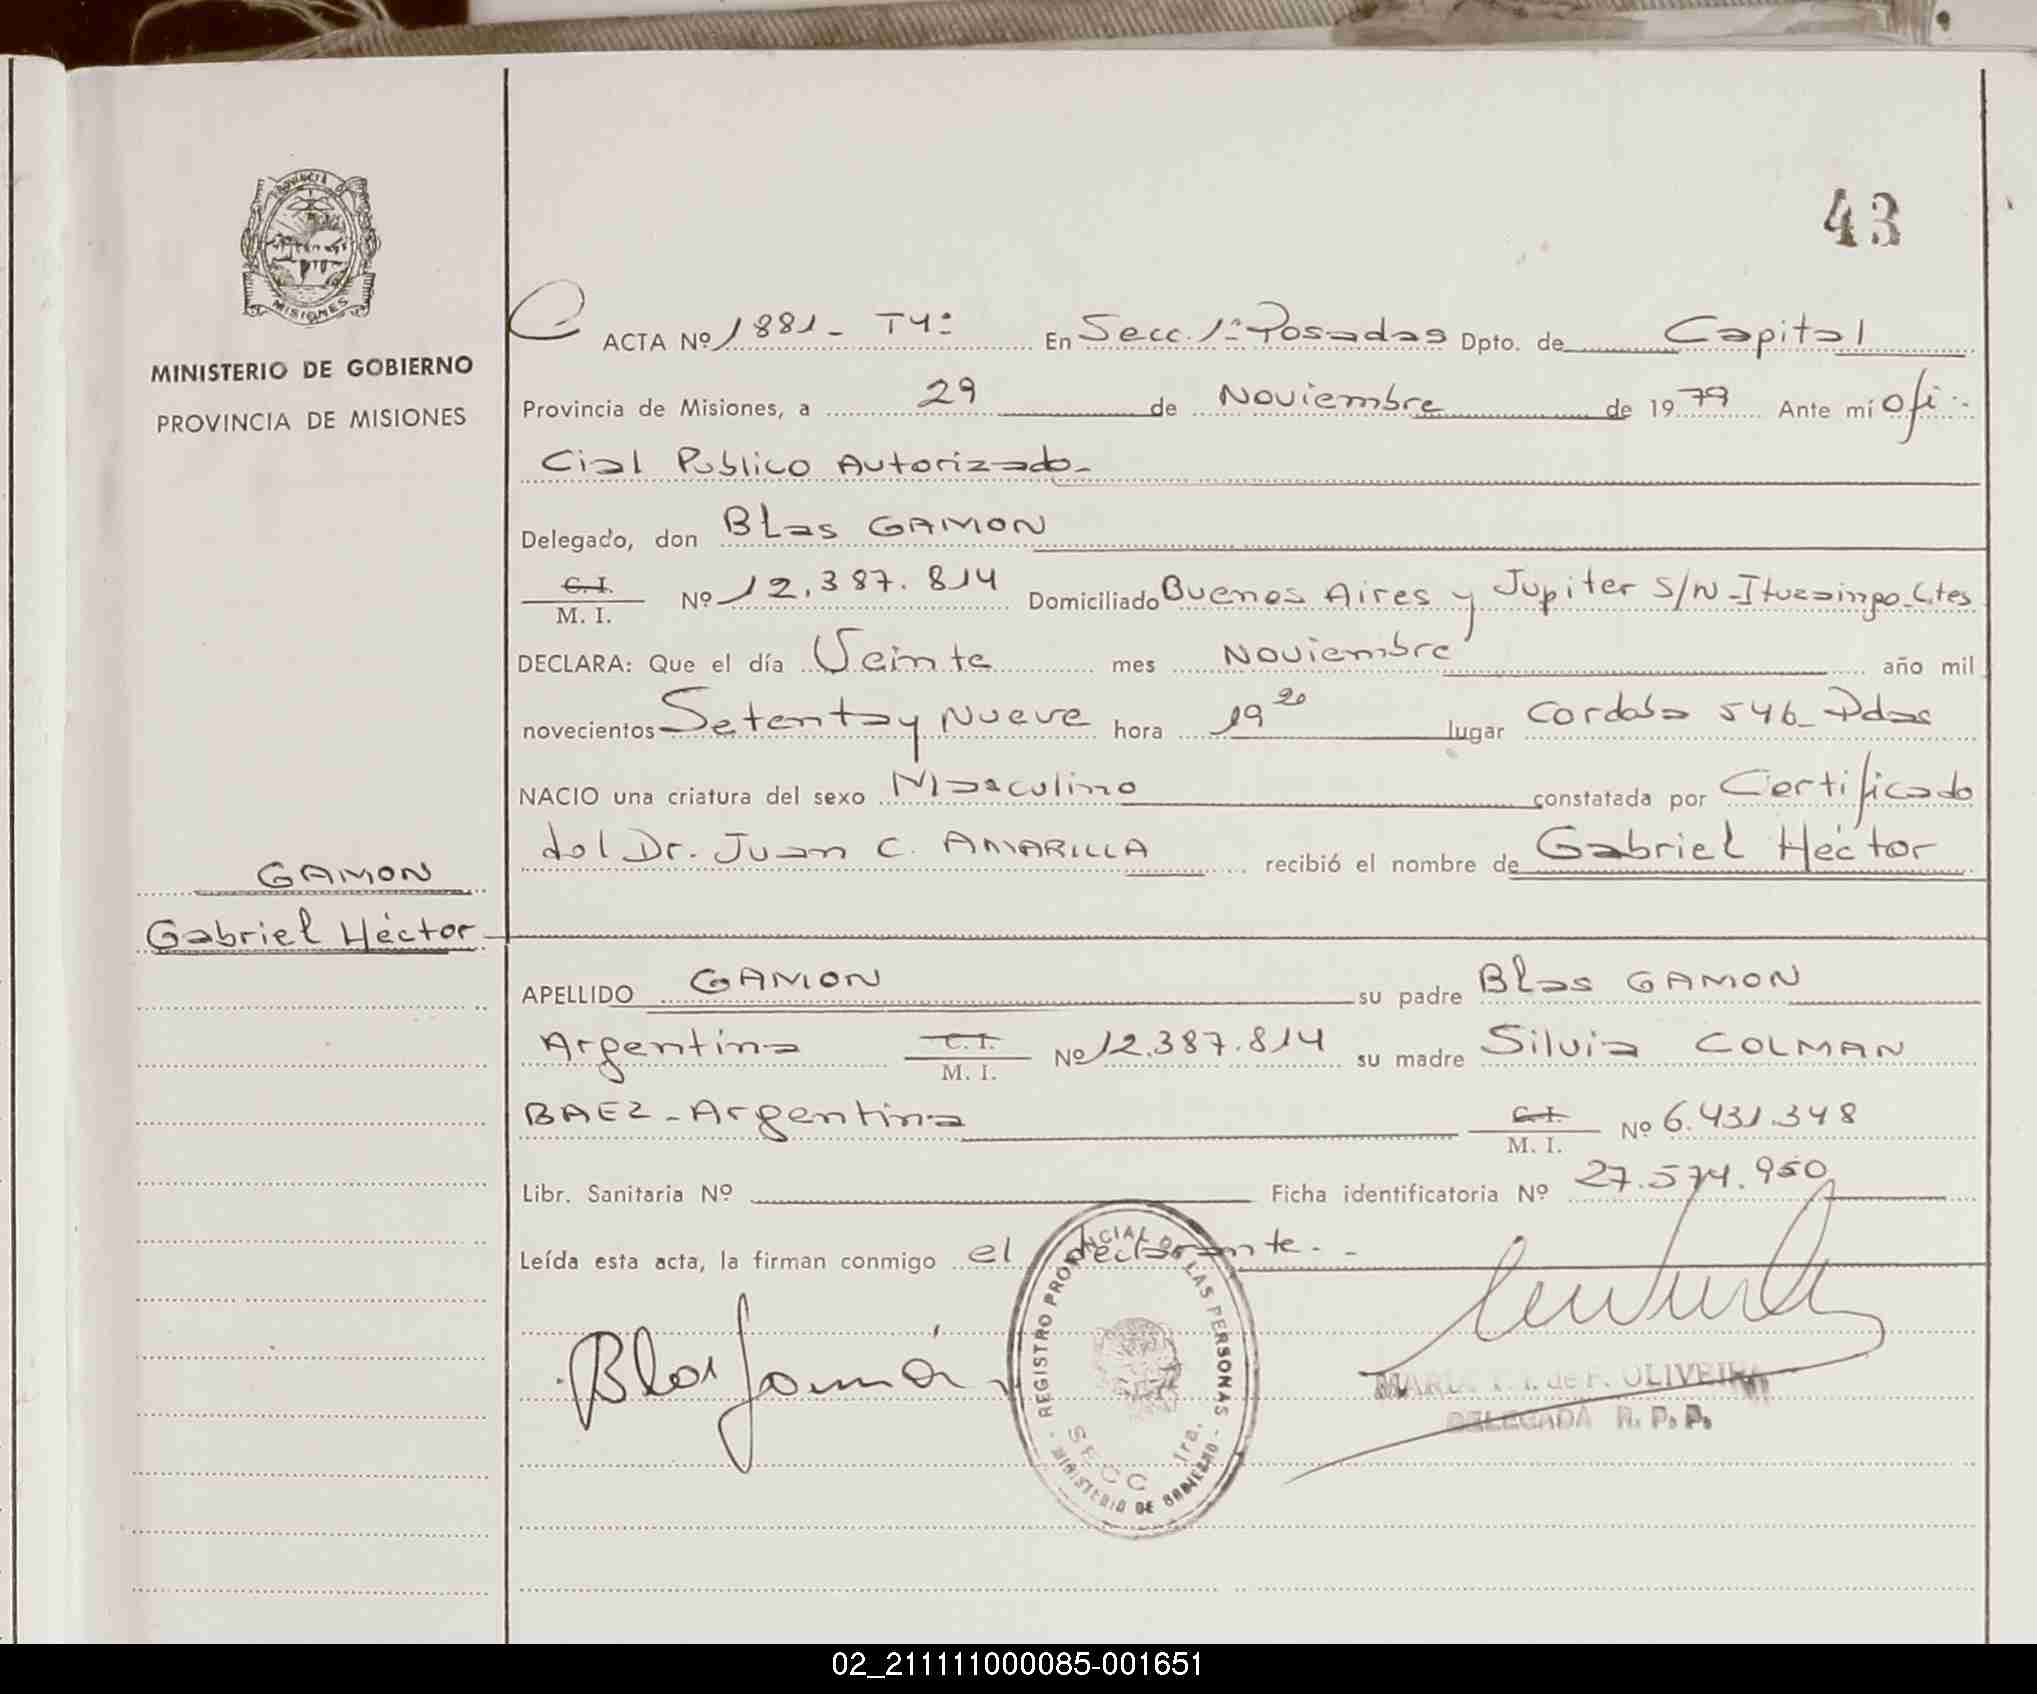 PROVINCIA DE
MISIONES
MINISTERIO DE GOBIERNO
PROVINCIA DE MISIONES
43
ACTA Nº 1881- Tº4: En Secc. 1ª Posadas Dpto. de Capital
Provincia de Misiones, a 29 de Noviembre de 1979 Ante mí Ofi-
cial Publico Autorizado-
Delegado, don Blas GAMON
C. I.
M. I. Nº 12.387.814 Domiciliado Buenos Aires y Jupiter s/n-Ituzaingo-Ctes
DECLARA: Que el día Veinte mes Noviembre año mil
novecientos Setenta y Nueve hora 19 20 lugar Cordoba 546-Pdas
NACIO una criatura del sexo Masculino constatada por Certificado
del Dr. Juan C. AMARILLA recibió el nombre de Gabriel Héctor
GAMON
Gabriel Héctor
APELLIDO GAMON su padre Blas GAMON
Argentina C. I.
M. I. Nº 12.387.814 su madre Silvia COLMAN
BAEZ-Argentina C. I.
M. I. Nº 6.431.348
Libr. Sanitaria Nº Ficha identificatoria Nº 27.574.950
Leída esta acta, la firman conmigo el declarante.-
Blas Gamón
REGISTRO PROVINCIAL DE LAS PERSONAS
SECC 1ra.
- MINISTERIO DE GOBIERNO -
MARIA de F. OLIVEIRA
DELEGADA R. P. P.
02_211111000085-001651